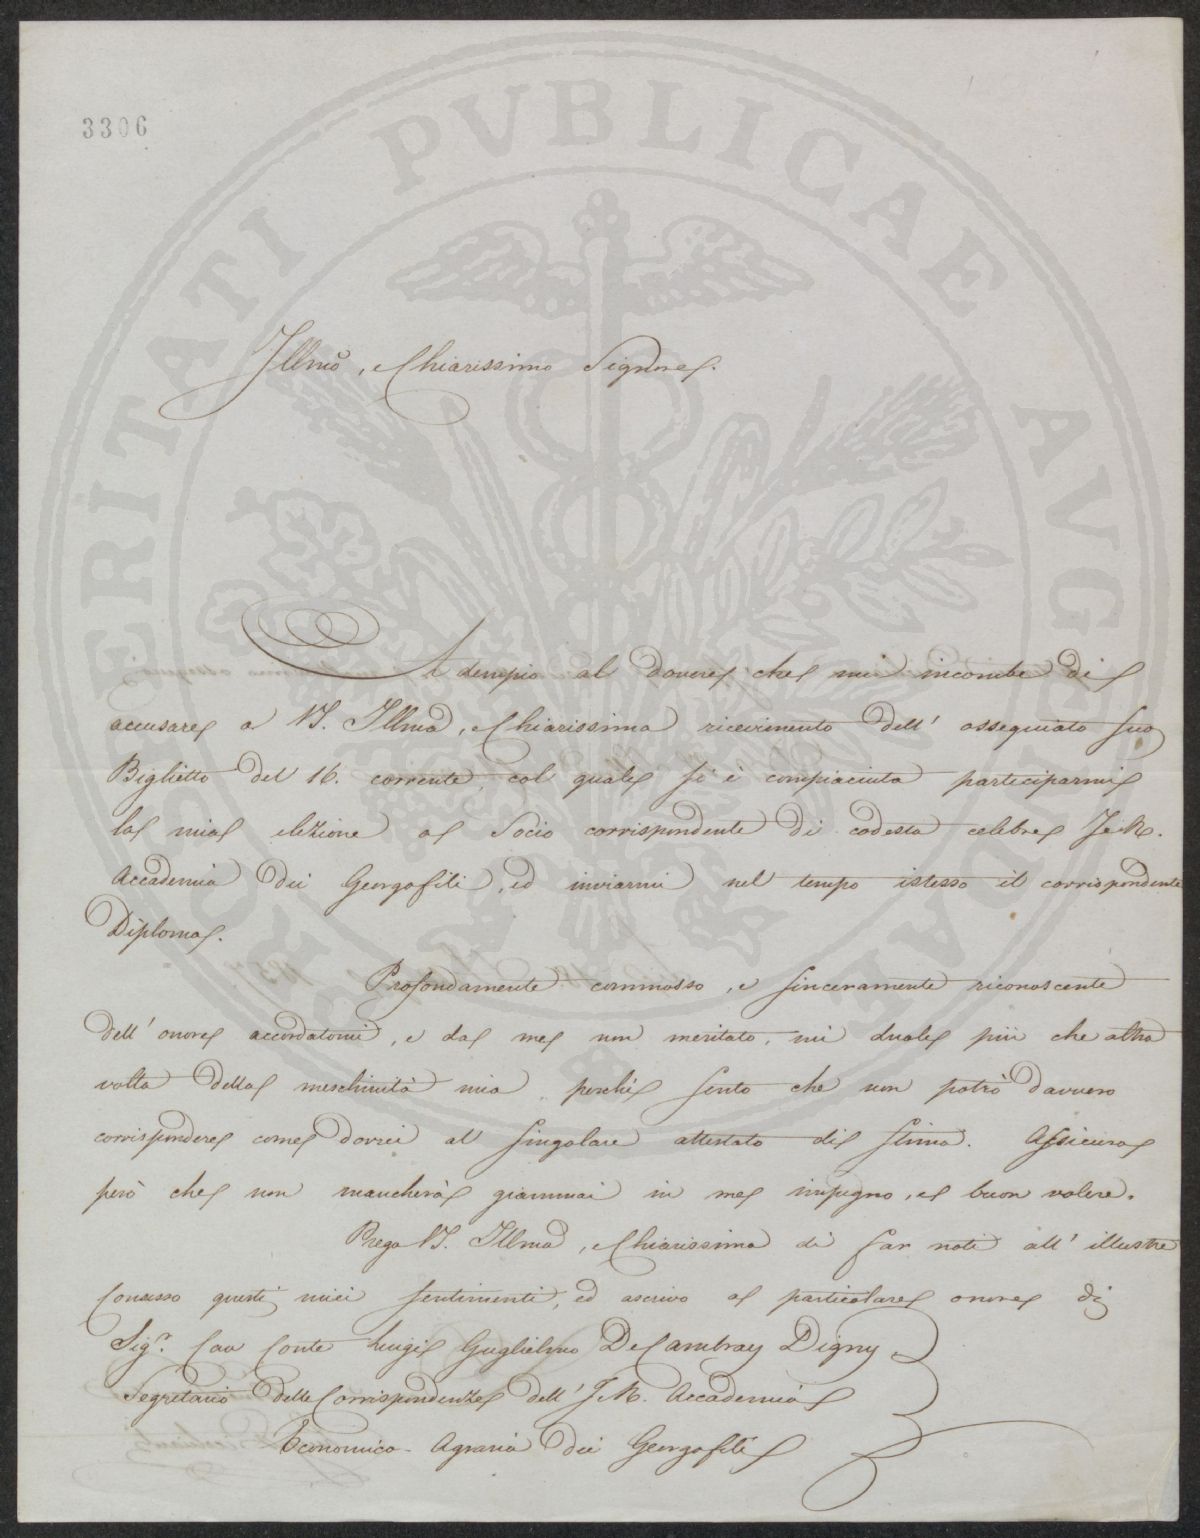 3306
Illmo, e Chiarissimo Signore.
Adempio al dovere che mi incombe di
accusare a V.S. Illma, e Chiarissima ricevimento dell' ossequiato suo
Biglietto del 16. corrente, col quale si è compiaciuta parteciparmi
la mia elezione a Socio corrispondente di codesta celebre I. e R.
Accademia dei Georgofili, ed inviarmi nel tempo istesso il corrispondente
Diploma.
Profondamente commosso, e sinceramente riconoscente
dell' onore accordatomi, e da me non meritato, mi duole più che altra
volta della meschinità mia perchè sento che non potrò davvero
corrispondere come dovrei al singolare attestato di stima. Assicura
però che non mancherà giammai in me impegno, e buon volere.
Prego V.S. Illma, e Chiarissima di far noti all' illustre
Consesso questi miei sentimenti, ed ascrivo a particolare onore di
Sigr. Cav Conte Luigi Guglielmo De Cambray Digny
Segretario delle Corrispondenze dell' I. R. Accademia
Economico-Agraria dei Georgofili